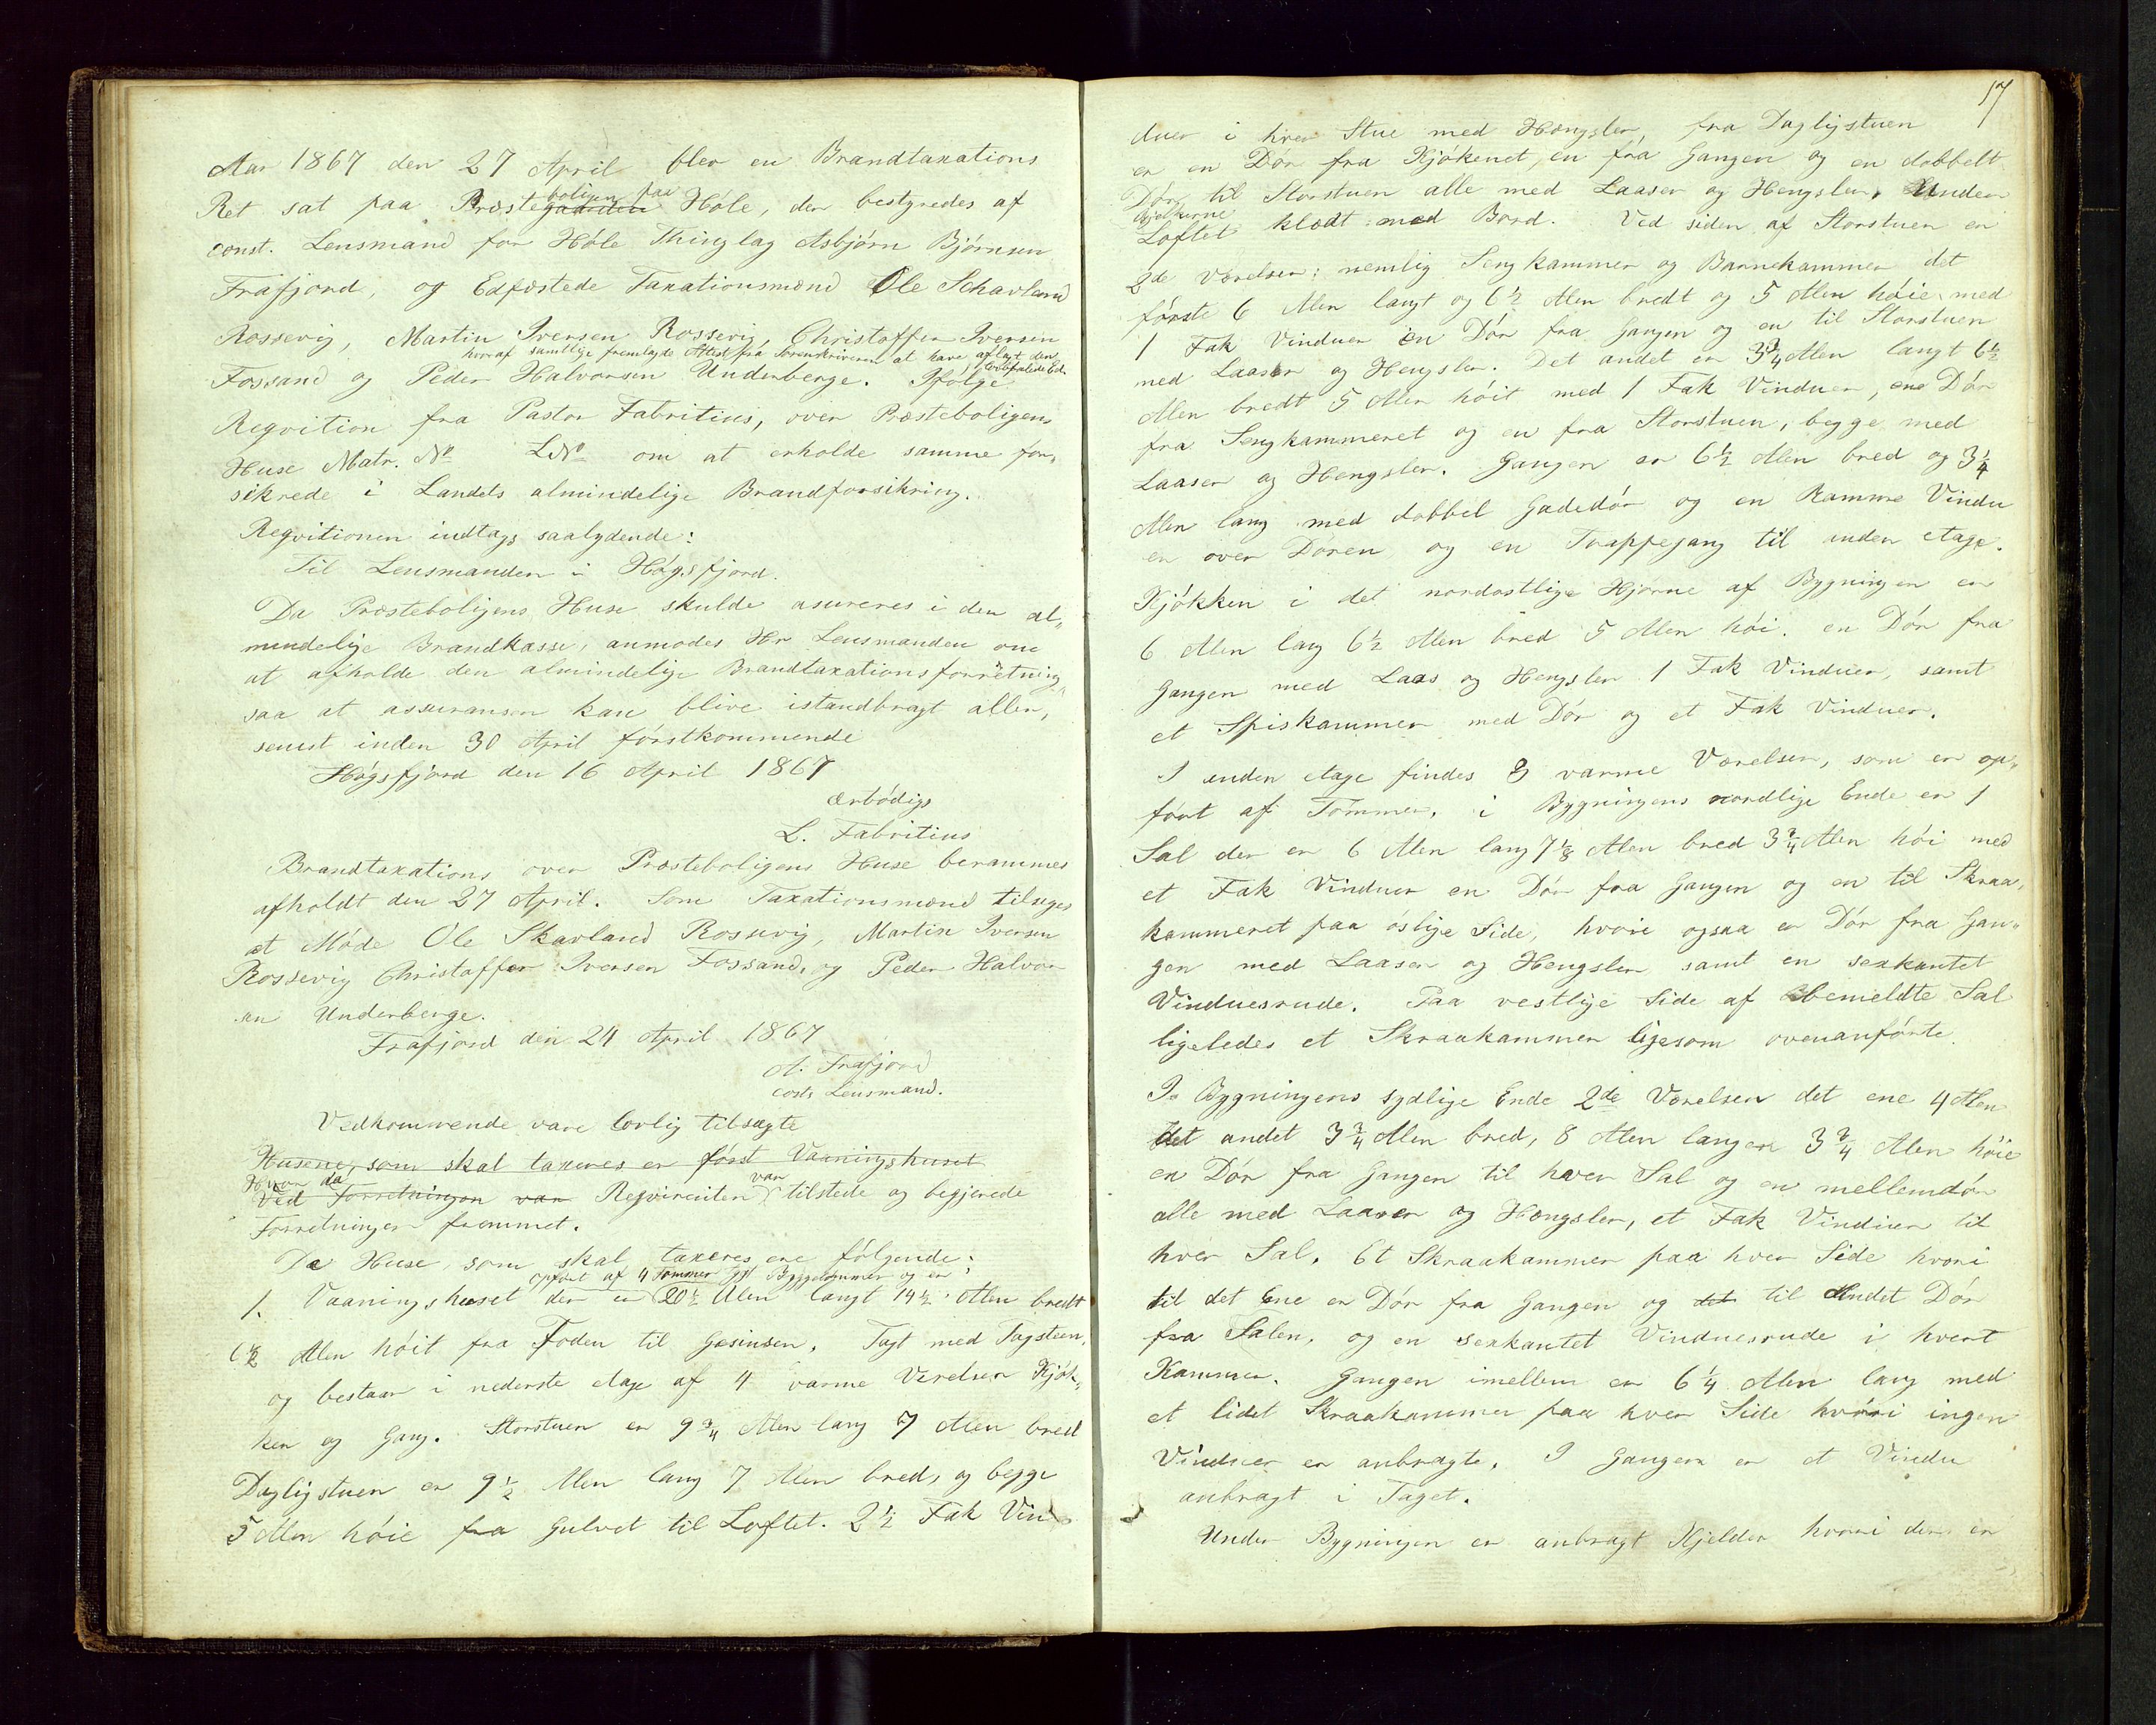 Aar 1867 den 27 April blev en Brandtaxations
Ret sat paa Præstegaarden boligen paa Høle, der bestyredes af
const. Lensmand for Høle Thinglag Asbjørn Bjørnsen
Frafjord, og Edfæstede Taxationsmænd Ole Schavland
Rossevig, Martin Iversen Rossevig, Christoffer Iversen
hvoraf samtlige fremlagde Attest fra Sorenskriveren at have aflagt den lovbefalede Ed.
Fossand og Peder Halvorsen Underberge. Ifølge
Reqvition fra Pastor Fabritius, over Præsteboligens
Huse Matr. No LNo om at erholde samme for,
sikrede i Landets almindelige Brandforsikring.
Reqvitionen indtags saalydende:
Til Lensmanden i Høgsfjord.
Da Præsteboligens Huse skulde asureres i den al,
mindelige Brandkasse, anmodes Hr Lensmanden om
at afholde den almindelige Brandtaxationsforretning
saa at assuransen kan blive istandbragt aller,
senest inden 30 April førstkommende
Høgsfjord den 16 April 1867
ærbødigs
L. Fabritius
Brandtaxations over Præsteboligens Huse berammes
afholdt den 27 April. Som Taxationsmænd tilsiges
at Møde Ole Skavland Rossevig, Martin Iversen
Rossevig Christoffer Iversen Fossand, og Peder Halvor
sen Underberge.
Frafjord den 24 April 1867
A. Frafjord
const. Lensmand.
Vedkommende vare lovlig tilsagte
Husene, som skal taxeres er først Vaaningshuset
Hvor da
Ved Forretningen var Reqvirenten var tilstede og begjerede
Forretningen fremmet.
De Huse som skal taxeres ere følgende:
opført af 4 Tommer Byggetømmer og er
1. Vaaningshuset der er 20½ Alen langt 14½ Alen bredt
6½ Alen høit fra Foden til Gesinsen. Tagt med Tagsteen,
og bestaar i nederste etage af 4 varme Værelser Kjøk,
ken og Gang. Storstuen er 9¾ Alen lang 7 Alen bred
Dagligstuen er 9½ Alen lang 7 Alen bred, og begge
5 Alen høie fra Gulvet til Loftet. 2½ Fak Vin
17
duer i hver Stue med Hængsler, fra Dagligstuen
er en Dør fra Kjøkenet, en fra Gangen og en dobbelt
Dør til Storstuen alle med Laaser og Hengsler. Under
Bjelkerne
Loftet klædt med Bord. Ved siden af Storstuen er
2de Værelser; nemlig Sengkammer og Barnekammer det
første 6 Alen langt og 6½ Alen bredt og 5 Alen høie med
1 Fak Vinduer en Dør fra Gangen og en til Storstuen
med Laaser og Hengsler. Det andet er 3¾ Alen langt 6½
Alen bredt 5 Alen høit med 1 Fak Vinduer, ene Dør
fra Sengkammeret og en fra Storstuen, begge med
Laaser og Hengsler. Gangen er 6½ Alen bred og 3¼
Alen lang med dobbel Gadedør og en Ramme Vindu
er over Døren og en Trappegang til anden etage.
Kjøkken i det nordostlige Hjørne af Bygningen er
6 Alen lang 6½ Alen bred 5 Alen høi. en Dør fra
Gangen med Laas og Hengsler 1 Fak Vinduer, samt
et Spiskammer med Dør og et Fak Vinduer.
I anden etage findes 3 varme Værelser, som er op,
ført af Tømmer, i Bygningens nordlige Ende er 1
Sal der er 6 Alen lang 7⅛ Alen bred 3¾ Alen høi med
et Fak Vinduer en Dør fra Gangen og en til Skraa,
kammeret paa øslige Side, hvori ogsaa er Dør fra Gan,
gen med Laaser og Hengsler samt en sexkantet
Vinduesrude. Paa vestlige Side af bemeldte Sal
ligeledes et Skraakammer ligesom ovenanførte.
I Bygningens sydlige Ende 2de Værelser det ene 4 Alen
det andet 3¾ Alen bred, 8 Alen langen 3¾ Alen høie
en Dør fra Gangen til hver Sal og en mellemdør
alle med Laaser og Hængsler, et Fak Vinduer til
hver Sal. Et Skraakammer paa hver Side hvori
til det Ene er Dør fra Gangen og det til Andet Dør
fra Salen, og en sexkantet Vinduesrude i hvert
Kammer. Gangen imellem er 6¼ Alen lang med
et lidet Skraakammer paa hver Side hvori ingen
Vinduer er anbragte. I Gangen er et Vindu
anbragt i Taget.
Under Bygningen er anbragt Kjelder hvori der er